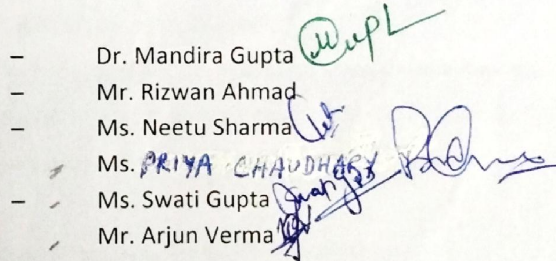 – Dr. Mandira Gupta
– Mr. Rizwan Ahmad
– Ms. Neetu Sharma
Ms. PRIYA CHAUDHARY
– Ms. Swati Gupta
Mr. Arjun Verma